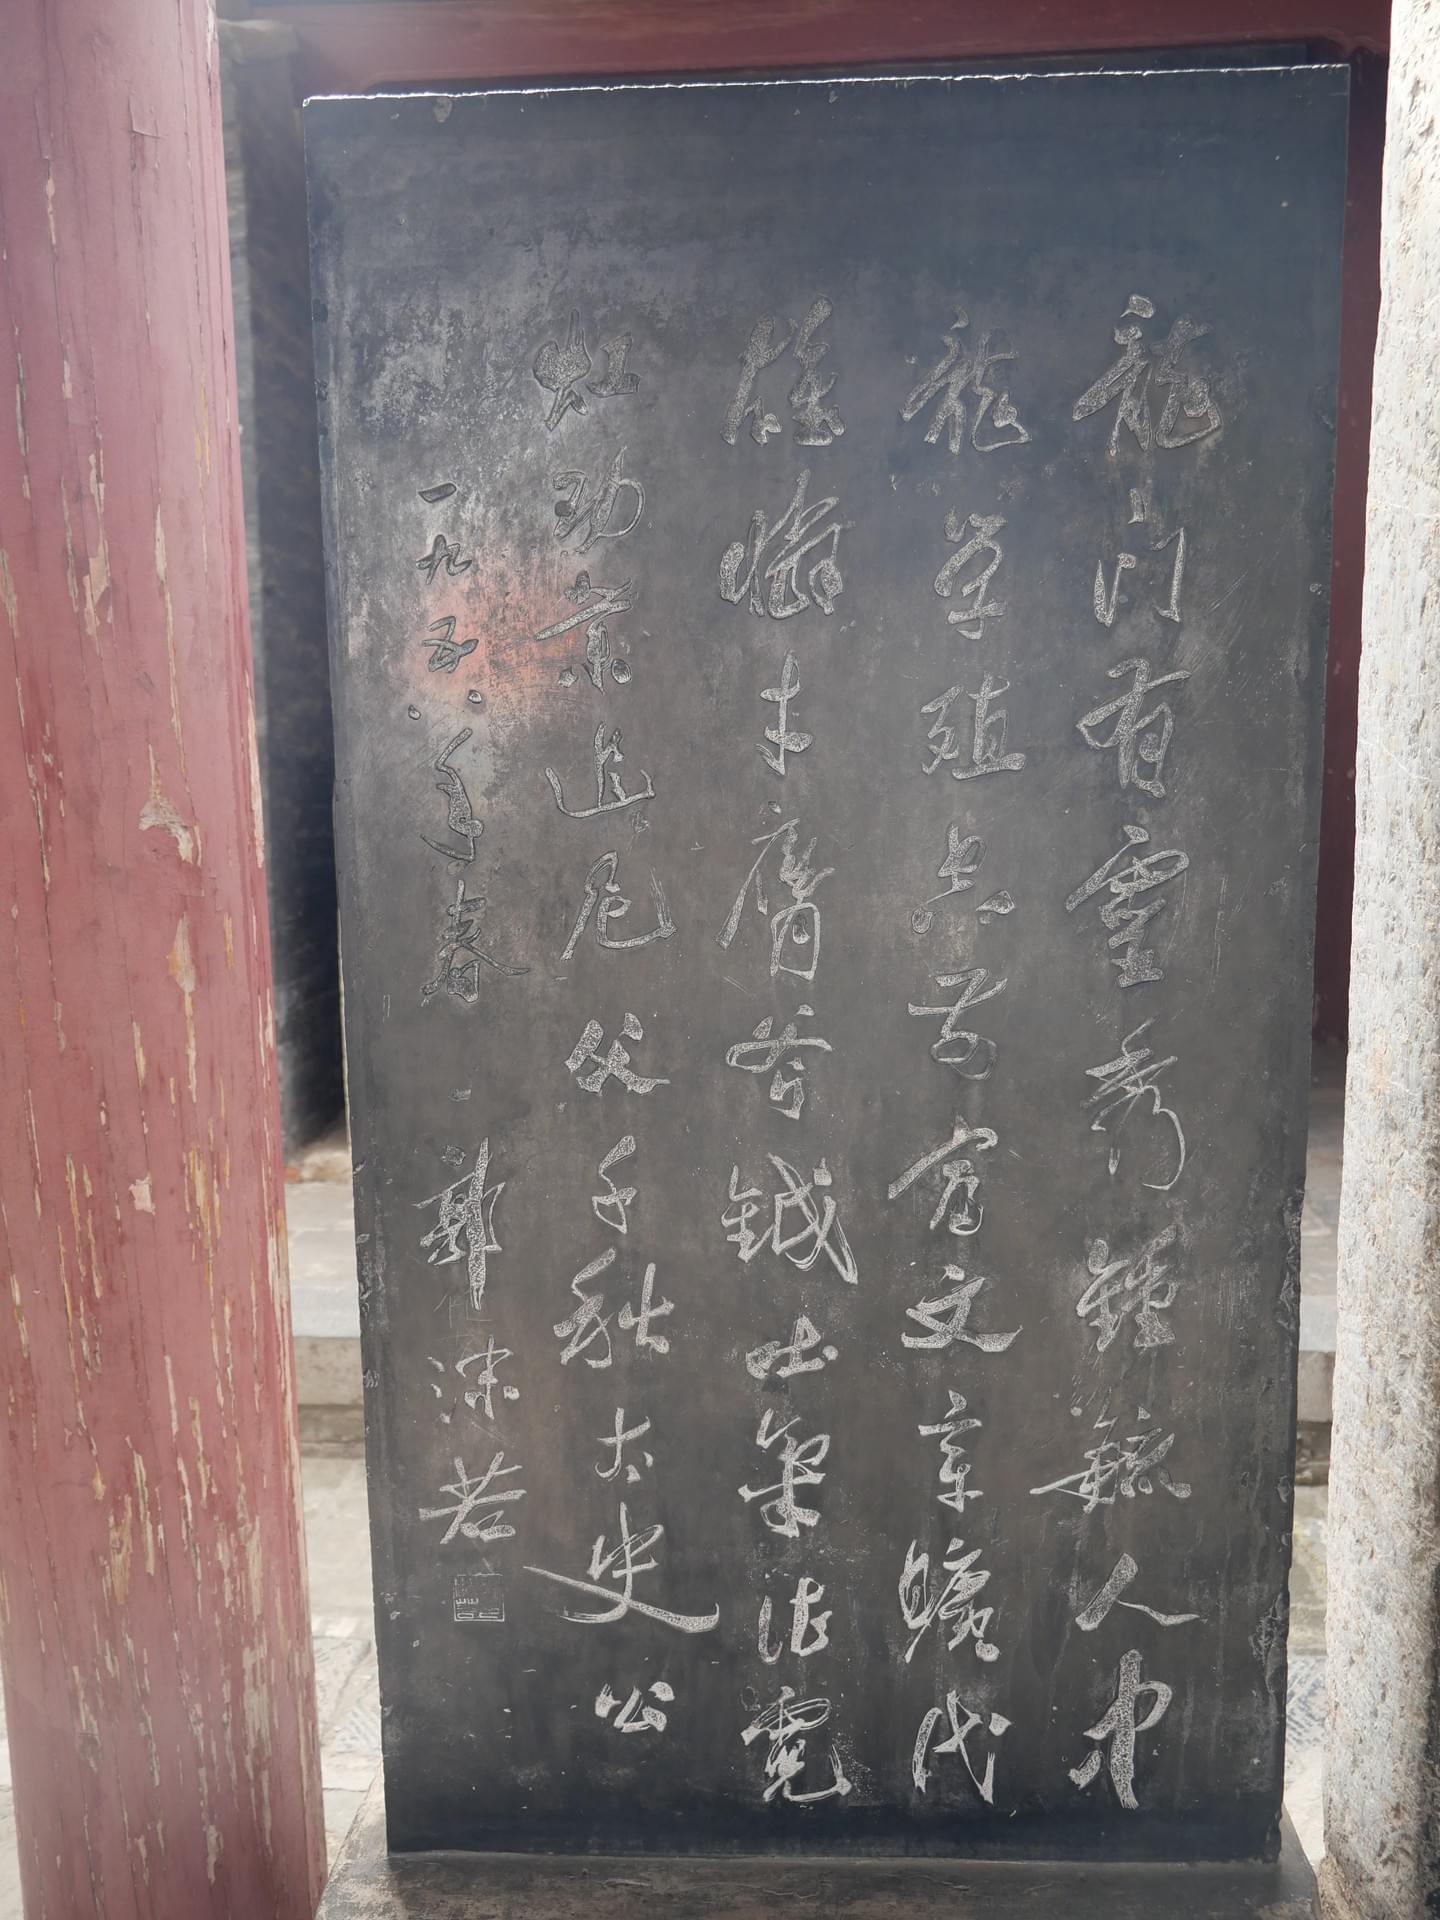 龍门有靈秀鍾毓人中
龍学殖空前富文章曠代
雄憐才膺斧鉞吐氣作霓
虹功業追尼父千秋太史公
一九五八年春 郭沫若